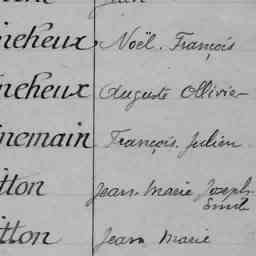 neheux Noël. François
neheux Auguste Ollivier
nemain François. Julien
tton Jean. Marie Joseph
Emile
itton Jean Marie